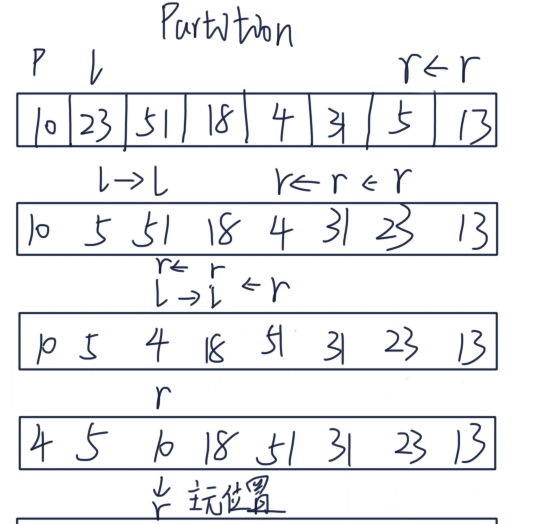 Partition
P l r←r
10 23 51 18 4 31 5 13
l→l r←r←r
10 5 51 18 4 31 23 13
r← r
l→l ←r
10 5 4 18 51 31 23 13
r
4 5 10 18 51 31 23 13
↓
r 主元位置